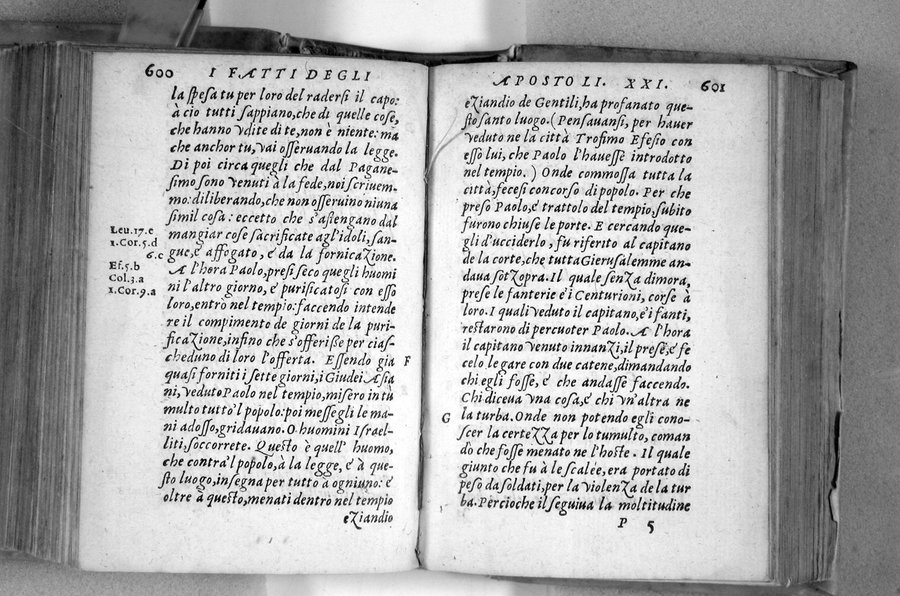 600 I FATTI DEGLI
la spesa tu per loro del radersi il capo:
à cio tutti sappiano, che di quelle cose,
che hanno vdite di te, non è niente: ma
che anchor tu, vai osseruando la legge.
Di poi circa quegli che dal Pagane-
simo sono venuti à la fede, noi scriuem-
mo: diliberando, che non osseruino niuna
simil cosa: eccetto che s'astengano dal
mangiar cose sacrificate agl'idoli, san-
gue, è affogato, è da la fornicazione.
A l'hora Paolo, presi seco quegli huomi
ni l'altro giorno, è purificatosi con esso
loro, entrò nel tempio: faccendo intende
re il compimento de giorni de la puri-
ficazione, infino che s'offerisse per cias-
cheduno di loro l'offerta. Essendo gia
quasi forniti i sette giorni, i Giudei Asia
ni, veduto Paolo nel tempio, misero in tu
multo tutto'l popolo: poi messegli le ma-
ni adosso, gridauano. O huomini Israel-
liti, soccorrete. Questo è quell' huomo,
che contra'l popolo, à la legge, è à que-
sto luogo, insegna per tutto à ogniuno: è
oltre à questo, menati dentro nel tempio
eziandio
Leu. 17.c
1.Cor.5.d
6.c
Ef.5.b
Col.3.a
1.Cor.9.a
F
APOSTOLI. XXI. 601
eziandio de Gentili, ha profanato que-
sto santo luogo. (Pensauansi, per hauer
veduto ne la città Trofimo Efesio con
esso lui, che Paolo l'hauesse introdotto
nel tempio.) Onde commossa tutta la
città, fecesi concorso di popolo. Per che
preso Paolo, è trattolo del tempio, subito
furono chiuse le porte. E cercando que-
gli d'ucciderlo, fu riferito al capitano
de la corte, che tutta Gierusalemme an-
daua sotzopra. Il quale senza dimora,
prese le fanterie è i Centurioni, corse à
loro. I quali veduto il capitano, è i fanti,
restarono di percuoter Paolo. A l'hora
il capitano venuto innanzi, il prese, è fe
celo legare con due catene, dimandando
chi egli fosse, è che andasse faccendo.
Chi diceua vna cosa, è chi vn'altra ne
la turba. Onde non potendo egli cono-
scer la certezza per lo tumulto, coman
dò che fosse menato ne l'hoste. Il quale
giunto che fu à le scalèe, era portato di
peso da soldati, per la violenza de la tur
ba. Percioche il seguiua la moltitudine
P 5
G